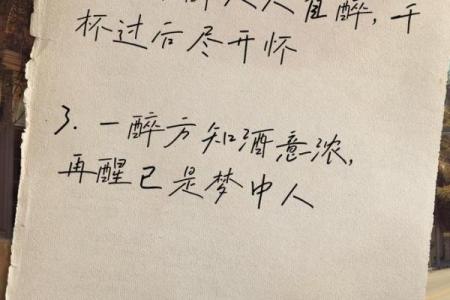 人自醉,千
杯过后尽开怀
3. 一醉方知酒意浓,
再醒已是梦中人